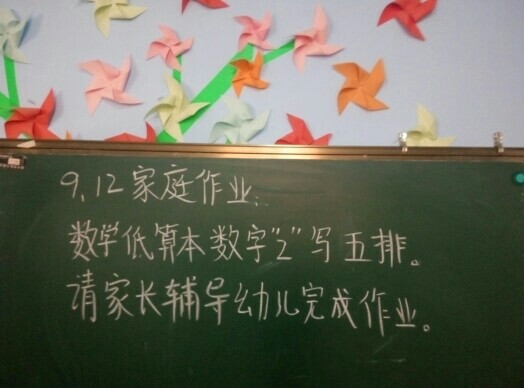 9.12家庭作业:
数学低算本数字“2”写五排。
请家长辅导幼儿完成作业。